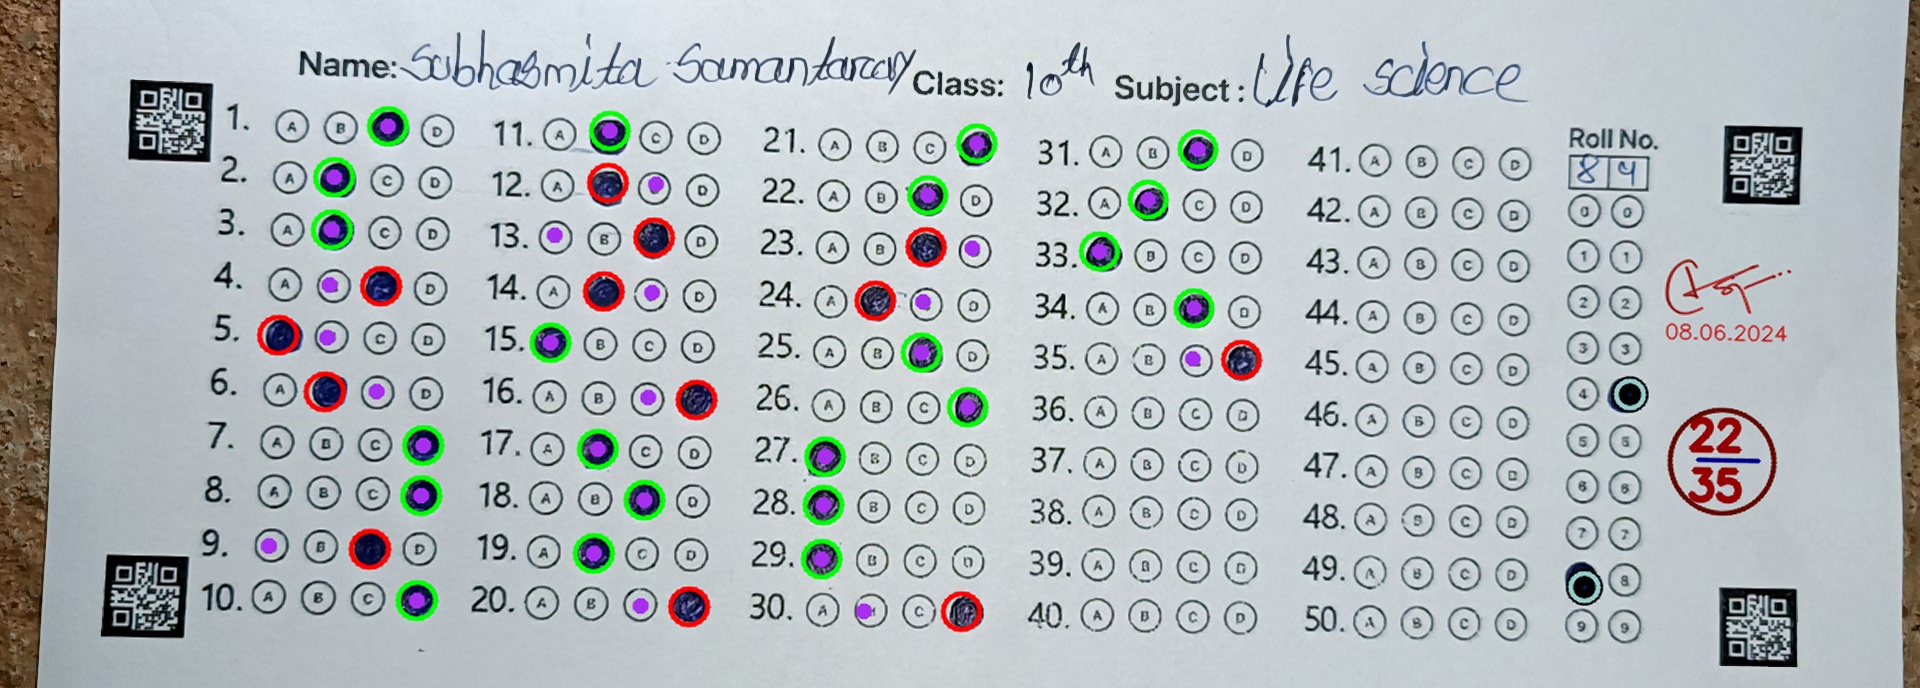 Name: Subhasmita Samantaray Class: 10th Subject: Life science
1. A B D
2. A C D
3. A C D
4. A D
5. C D
6. A D
7. A B C
8. A B C
9. B D
10. A B C
11. A C D
12. A D
13. B D
14. A D
15. B C D
16. A B
17. A C D
18. A B D
19. A C D
20. A B
21. A B C
22. A B D
23. A B
24. A D
25. A B D
26. A B C
27. B C D
28. B C D
29. B C D
30. A C
31. A B D
32. A C D
33. B C D
34. A B D
35. A B
36. A B C D
37. A B C D
38. A B C D
39. A B C D
40. A B C D
41. A B C D
42. A B C D
43. A B C D
44. A B C D
45. A B C D
46. A B C D
47. A B C D
48. A B C D
49. A B C D
50. A B C D
Roll No.
8 4
0 0
1 1
2 2
3 3
4
5 5
6 6
7 7
8
9 9
08.06.2024
22
35